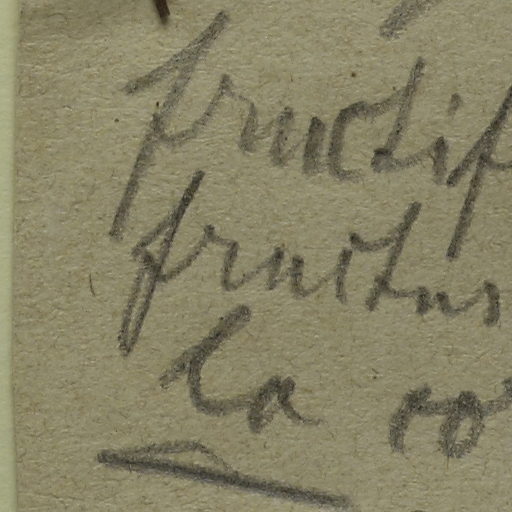 fructif
fructus
la ro